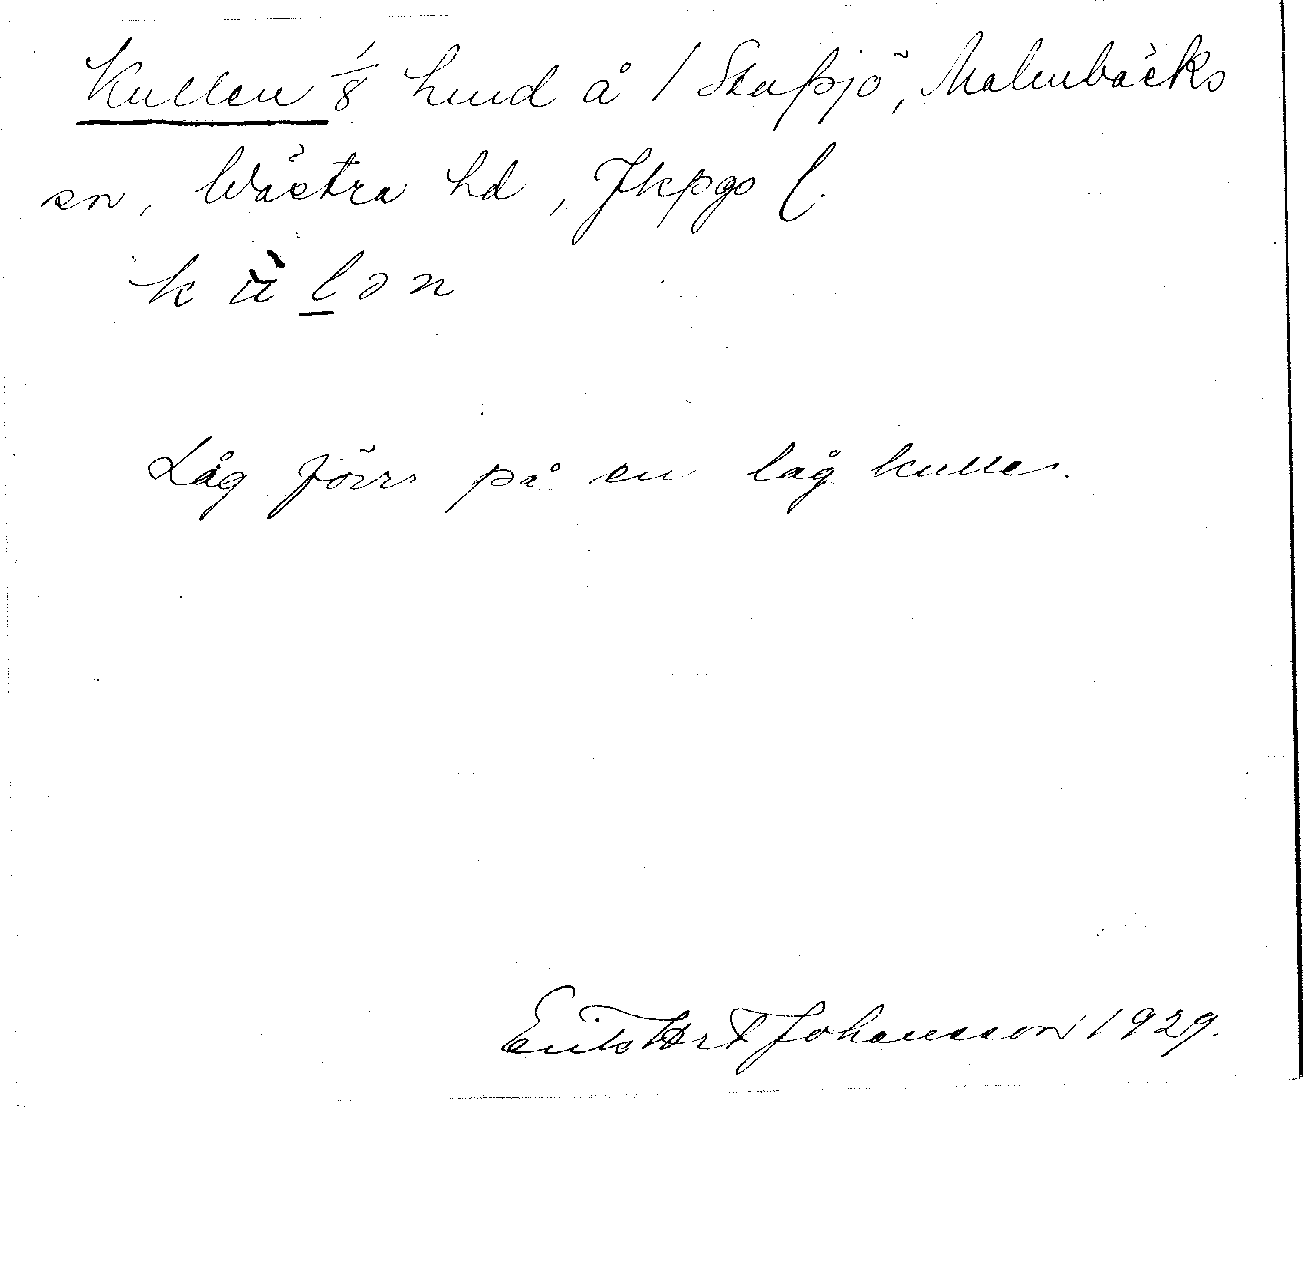 Kullen 1/8 hmd å 1 Stapsjö, Malmbäcks
sn, Västra hd, Jkpgs l.
Låg förr på en låg kulle.
Johansson 1929.